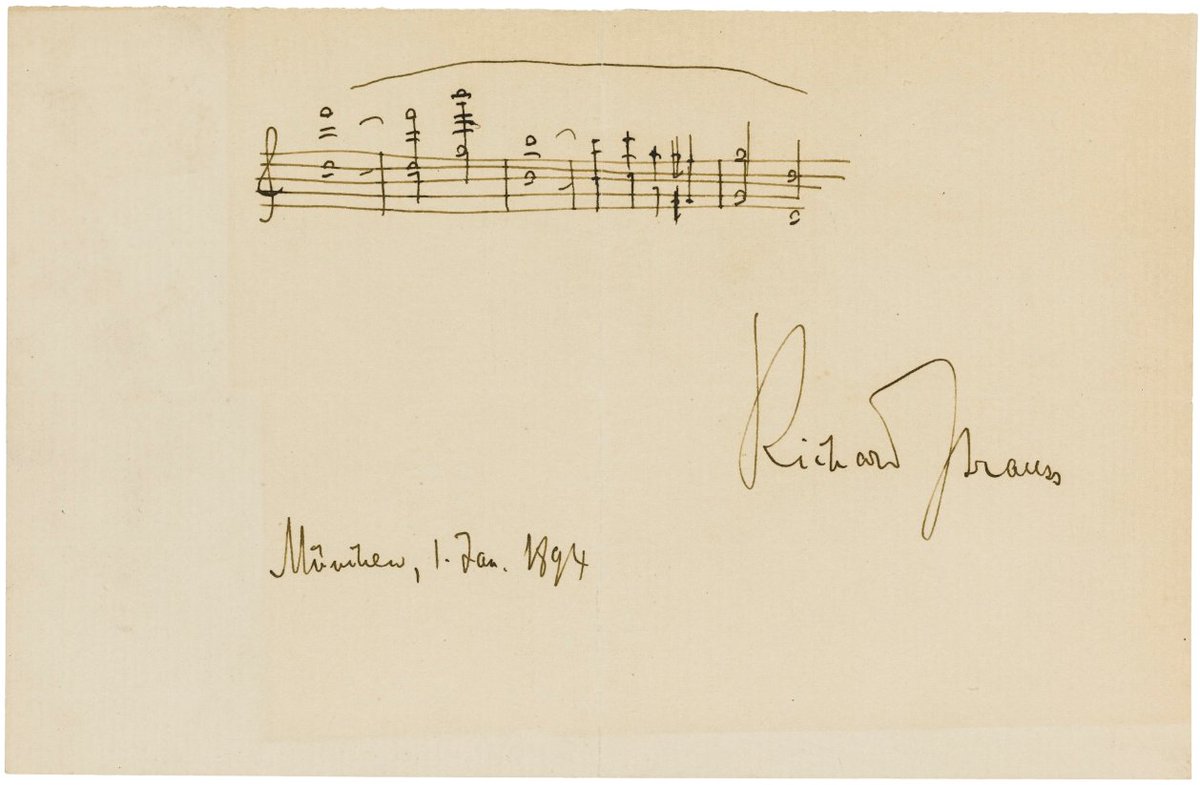 Richard Strauss
München, 1. Jan. 1894